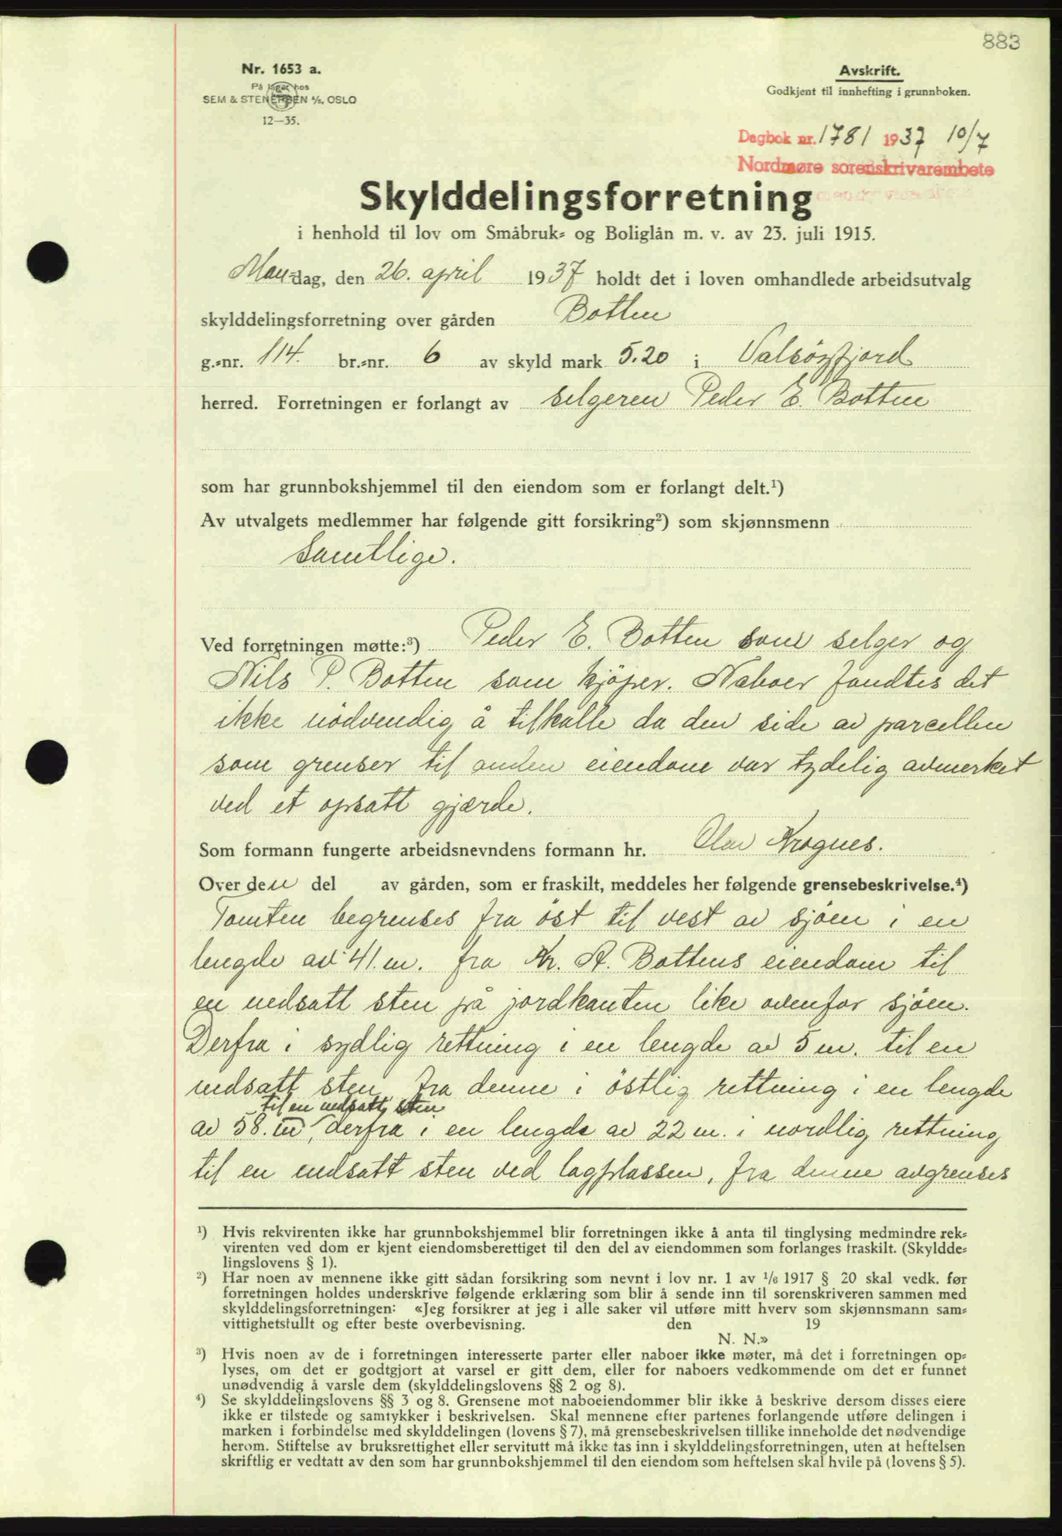 883
Nr. 1653 a.
På lager hos
SEM & STENERSEN A/S, OSLO
12—35.
Avskrift.
Godkjent til innhefting i grunnboken.
Dagbok nr. 1781 1937 10/7
Nordmøre sorenskrivarembete
Skylddelingsforretning
i henhold til lov om Småbruk- og Boliglån m. v. av 23. juli 1915.
Mandag, den 26. april 1937 holdt det i loven omhandlede arbeidsutvalg
skylddelingsforretning over gården Botten
g.-nr. 114. br.-nr. 6 av skyld mark 5.20 i Valsøyfjord
herred. Forretningen er forlangt av selgeren Peder E. Botten
som har grunnbokshjemmel til den eiendom som er forlangt delt.¹)
Av utvalgets medlemmer har følgende gitt forsikring²) som skjønnsmenn
Samtlige.
Ved forretningen møtte:³) Peder E. Botten som selger og
Nils P. Botten som kjöper. Naboer fandtes det
ikke nödvendig å tilkalle da den side av parcellen
som grenser til anden eiendom var tydelig avmerket
ved et opsatt gjærde.
Som formann fungerte arbeidsnevndens formann hr. Olav Krognes.
Over den del av gården, som er fraskilt, meddeles her følgende grensebeskrivelse.⁴)
Tomten begrenses fra öst til vest av sjöen i en
lengde av 41 m. fra Kr. A. Bottens eiendom til
en nedsatt sten på jordkanten like ovenfor sjöen.
Derfra i sydlig rettning i en lengde av 5 m. til en
nedsatt sten, fra denne i östlig rettning i en lengde
til en nedsatt sten
av 58. m, derfra i en lengde av 22 m. i nordlig rettning
til en nedsatt sten ved lagplassen, fra denne avgrenses
¹) Hvis rekvirenten ikke har grunnbokshjemmel blir forretningen ikke å anta til tinglysing medmindre rek-
virenten ved dom er kjent eiendomsberettiget til den del av eiendommen som forlanges fraskilt. (Skyldde-
lingslovens § 1).
²) Har noen av mennene ikke gitt sådan forsikring som nevnt i lov nr. 1 av 1/6 1917 § 20 skal vedk. før
forretningen holdes underskrive følgende erklæring som blir å sende inn til sorenskriveren sammen med
skylddelingsforretningen: «Jeg forsikrer at jeg i alle saker vil utføre mitt hverv som skjønnsmann sam-
vittighetsfullt og efter beste overbevisning. den 19
N. N.»
³) Hvis noen av de i forretningen interesserte parter eller naboer ikke møter, må det i forretningen op-
lyses, om det er godtgjort at varsel er gitt dem, eller for naboers vedkommende om det er funnet
unødvendig å varsle dem (skylddelingslovens §§ 2 og 8).
⁴) Se skylddelingslovens §§ 3 og 8. Grensene mot naboeiendommer blir ikke å beskrive dersom disses eiere
ikke er tilstede og samtykker i beskrivelsen. Skal mennene efter partenes forlangende utføre delingen i
marken i forbindelse med skylddelingen (lovens § 7), må grensebeskrivelsen tillike inneholde det nødvendige
herom. Stiftelse av bruksrettighet eller servitutt må ikke tas inn i skylddelingsforretningen, uten at heftelsen
skriftlig er vedtatt av den som har grunnbokshjemmel til den eiendom som heftelsen skal hvile på (lovens § 5).